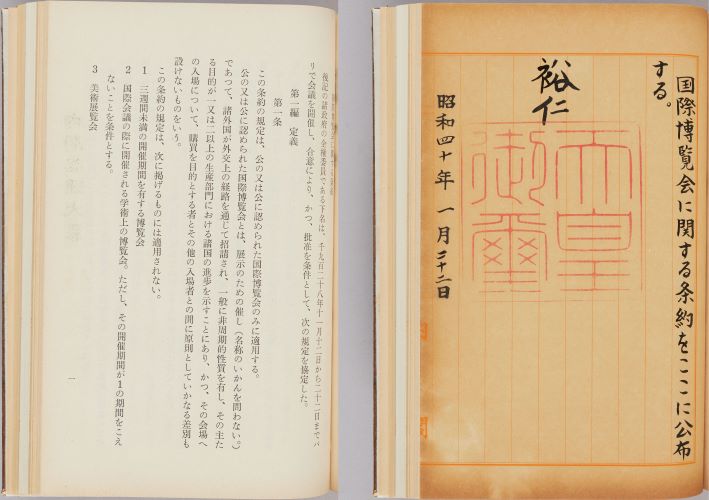 国際博覧会に関する条約をここに公布
する。
裕仁
天皇
御璽
昭和四十年一月二十二日
後記の諸政府の全権委員である下名は、千九百二十八年十一月十二日から二十二日までパ
リで会議を開催し、合意により、かつ、批准を条件として、次の規定を協定した。
第一編 定義
第一条
この条約の規定は、公の又は公に認められた国際博覧会のみに適用する。
公の又は公に認められた国際博覧会とは、展示のための催し(名称のいかんを問わない。)
であつて、諸外国が外交上の経路を通じて招請され、一般に非周期的性質を有し、その主た
る目的が一又は二以上の生産部門における諸国の進歩を示すことにあり、かつ、その会場へ
の入場について、購買を目的とする者とその他の入場者との間に原則としていかなる差別も
設けないものをいう。
この条約の規定は、次に掲げるものには適用されない。
1 三週間未満の開催期間を有する博覧会
2 国際会議の際に開催される学術上の博覧会。ただし、その開催期間が1の期間をこえ
ないことを条件とする。
3 美術展覧会
一